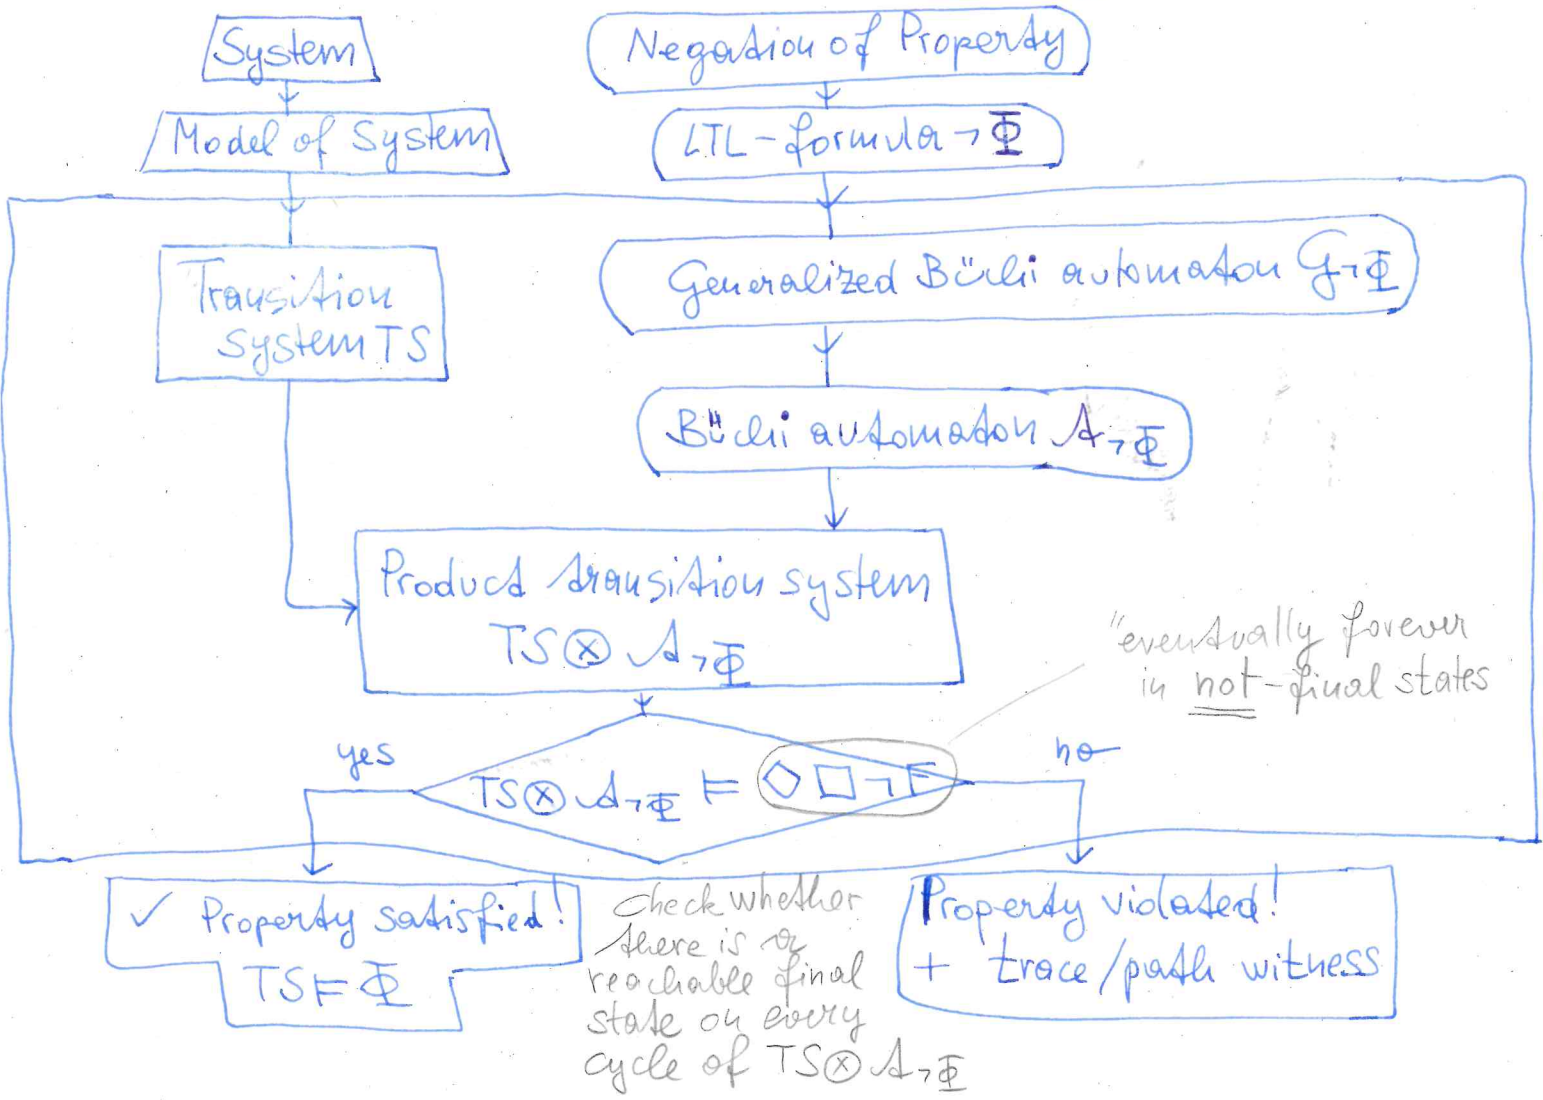 System
Negation of Property
Model of System
LTL-formula ¬Φ
Transition
system TS
Generalized Büchi automaton G¬Φ
Büchi automaton A¬Φ
Product transition system
TS ⊗ A¬Φ
"eventually forever
in not-final states
yes
TS ⊗ A¬Φ ⊨ ◇□¬F
no
✓ Property satisfied!
TS ⊨ Φ
check whether
there is a
reachable final
state on every
cycle of TS ⊗ A¬Φ
Property violated!
+ trace/path witness